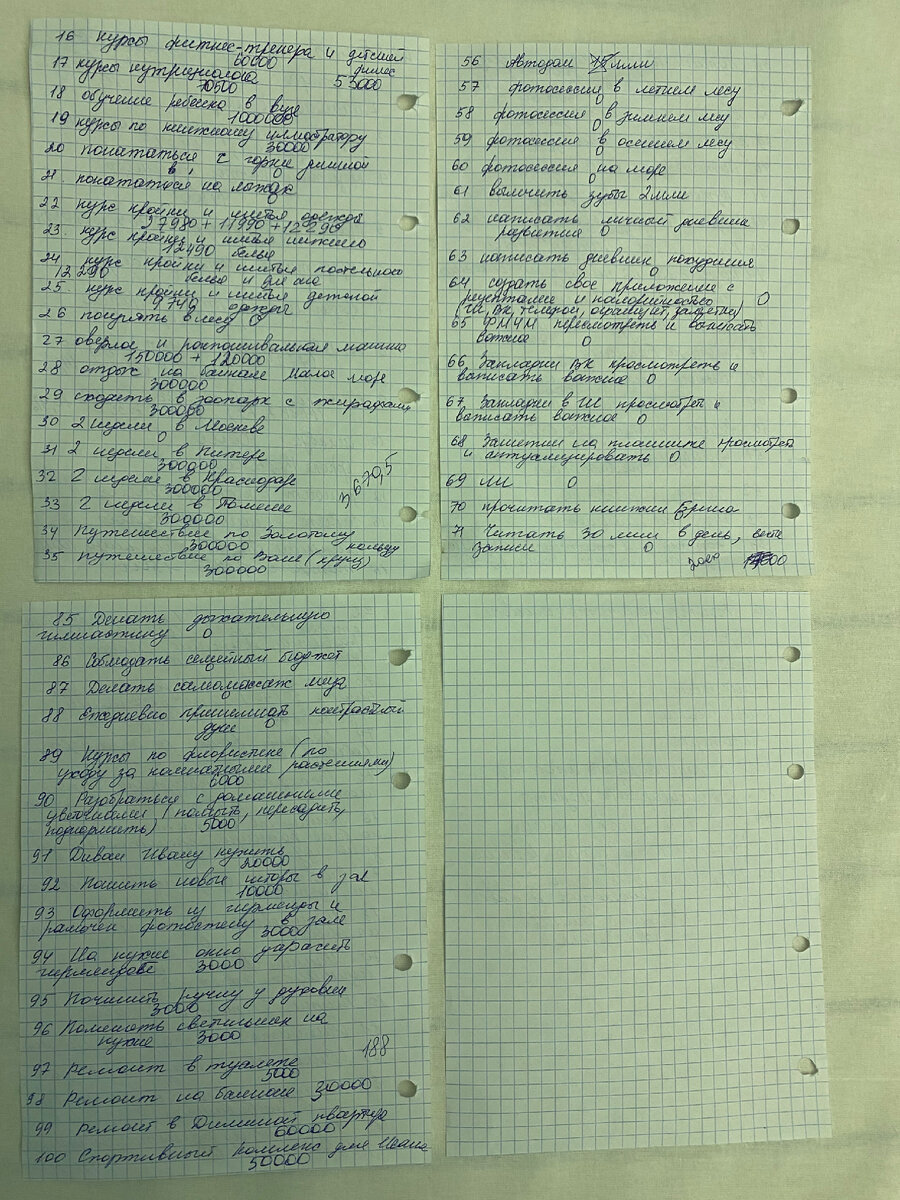 16 курсы фитнес-тренера и детский
60000 фитнес
17 курсы нутрициолога 53000
70500
18 обучение ребенка в вузе
1000000
19 курсы по книжному иллюстратору
30000
20 покататься с горки зимой
в 0
21 покататься на лыжах
0
22 курс кройки и шитья одежды
27980 + 11990 + 12290
23 курс кройки и шитья нижнего
12490 белья
24 курс кройки и шитья постельного
12290 белья и
25 курс кройки и шитья детской
9740 одежды
26 погулять в лесу 0
27 оверлок и распошивальная машина
150000 + 120000
28 отдых на Байкале Малое море
300000
29 сходить в зоопарк с жирафами
300000
30 2 недели в Москве
0
31 2 недели в Питере
300000
32 2 недели в Краснодаре
300000
3670,5
33 2 недели в Тюмени
300000
34 Путешествие по Золотому
300000 кольцу
35 путешествие по Волге (круиз)
300000
56 Автодом млн
57 фотосессия в летнем лесу
0
58 фотосессия в зимнем лесу
0
59 фотосессия в осеннем лесу
0
60 фотосессия на море
0
61 вылечить зубы 2 млн
62 написать личный дневник
развития 0
63 написать дневник похудения
0
64 создать свое приложение с
рецептами и калорийностью 0
65 пересмотреть и выписать
важное 0
66 Закладки ВК просмотреть и
выписать важное 0
67 Закладки в просмотреть и
выписать важное 0
68 Заметки на планшете просмотреть
и актуализировать 0
69 0
70 прочитать книжки
0
71 Читать 30 мин в день, вести
записи 0
85 Делать дыхательную
гимнастику 0
86 Соблюдать семейный бюджет
0
87 Делать самомассаж лица
0
88 Ежедневно принимать контрастный
душ 0
89 Курсы по флористике (по
уходу за комнатными растениями)
6000
90 Разобраться с домашними
цветочками (полить, пересадить,
подкормить) 5000
91 Диван Ивану купить
20000
92 Пошить новые шторы в зал
10000
93 Оформить из гирлянды и
рамочек фотостену в зале
3000
94 На кухне окно украсить
гирляндой 3000
95 Починить ручку у духовки
3000
96 Поменять светильник на
кухне 3000
188
97 Ремонт в туалете
5000
98 Ремонт на балконе 30000
99 Ремонт в Диминой квартире
60000
100 Спортивный комплекс для Ивана
50000